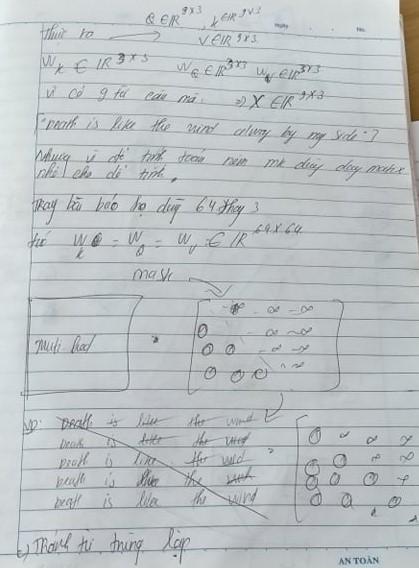 Q ∈ IR^9×3, K ∈ IR^9×3
Thực ra → V ∈ IR^9×3
W_K ∈ IR^3×3 W_Q ∈ IR^3×3 W_V ∈ IR^3×3
vì có 9 từ câu mà. => X ∈ IR^9×3
"Death is like the wind always by my side"?
Nhưng vì để tính toán nên mk dùng matrix
nhỏ cho dễ tính.
Trong bài báo họ dùng 64 thay 3
W_K = W_Q = W_V ∈ IR^64×64
mask
-∞ -∞ -∞
0 -∞ -∞
Muti-head
0 0 -∞ -∞
0 0 0 -∞
VD: Death is like the wind
Death is like the wind
Death is like the wind
Death is like the wind
Death is like the wind
0 ∞ ∞ ∞
0 0 ∞ ∞
0 0 0 ∞
0 0 0
c) Tránh từ trùng lặp
AN TOÀN